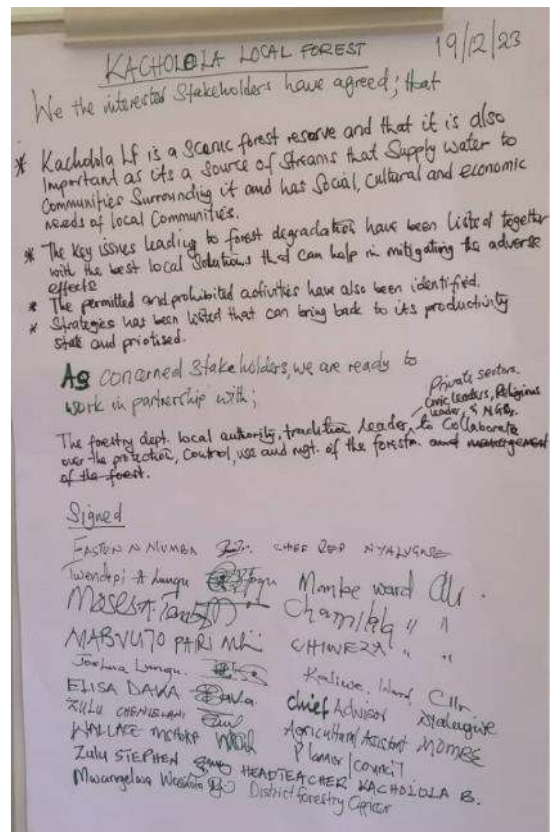 19/12/23
KACHOLOLA LOCAL FOREST
We the interested Stakeholders have agreed; that
* Kacholola LF is a Scenic forest reserve and that it is also
Important as its a Source of Streams that Supply water to
Communities Surrounding it and has Social, Cultural and economic
needs of local Communities.
* The key issues leading to forest degradation have been listed together
with the best local Solutions that can help in mitigating the adverse
effects
* The permitted and prohibited activities have also been identified.
* Strategies has been listed that can bring back to its productivity
state and priotised.
As concerned Stakeholders, we are ready to
work in partnership with;
Private sectors.
Civic leaders, Religious
leader, & NGOs.
The forestry dept. local authority, tradition leader, to Collaborate
over the protection, Control, use and mgt. of the forest. and management
of the forest.
Signed
EASTON N NUMBA CHIEF REP NYALUGWE
Twendepi A Lungu Mombe ward
Moses
MABVUTO PARI CHIWEZA " "
Joshua Lungu. Ward Cllr
ELISA DAKA Chief Advisor
ZULU Agricultural Assistant MOMBE
WALLACE Planner/council
Zulu STEPHEN HEADTEACHER KACHOLOLA B.
Mwangelwa District forestry Officer